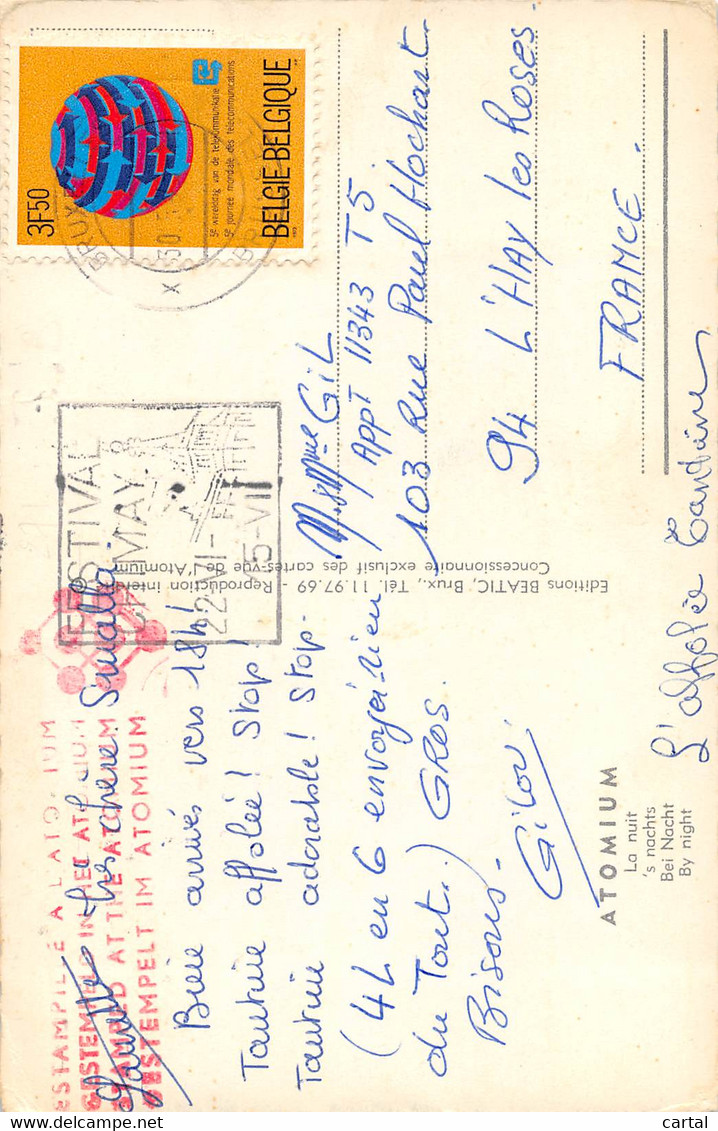 ESTAMPILÉ A L'ATOMIUM
GESTEMPELD IN HET ATOMIUM
STAMPED AT THE ATOMIUM
GESTEMPELT IM ATOMIUM
très chère Smalla
Bien arrivés vers 18h!
Tantine affolée! Stop!
Tantine adorable! Stop.
(4L en G envoyé. rien
du Tout.) GROS
Bisous.
Gilou
L'affolée Tantine
ATOMIUM
La nuit
's nachts
Bei Nacht
By night
Editions BEATIC, Brux., Tél. 11.97.69 - Reproduction interdite
Concessionnaire exclusif des cartes-vue de l'Atomium
BELGIE-BELGIQUE
5e werelddag van de telekommunikatie
5e journée mondiale des télécommunications
3F50
BRUX
X
FESTIVAL
22-VI-
5-VII
M. Mme GIL
Appt 11343 T5
103 Rue Paul Hochart.
94 L'HAY les Roses.
FRANCE.
cartal